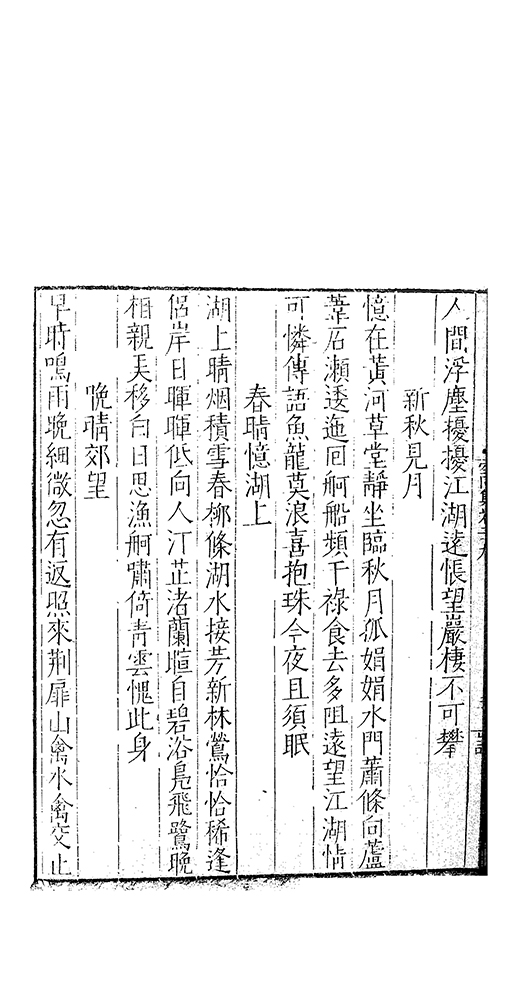 人間浮塵擾擾江湖遠悵望巖棲不可攀
新秋見月
憶在黃河草堂靜坐臨秋月孤娟娟水門蕭條向蘆
葦石瀬逶迤回舸船頻干祿食去多阻遠望江湖情
可憐傳語魚龍莫浪喜抱珠今夜且須眠
春晴憶湖上
湖上晴烟積雪春柳條湖水接芳新林鶯恰恰稀逢
侶岸日暉暉低向人汀芷渚蘭暄自碧浴鳧飛鷺晚
相親天移白日思漁舸嘯倚青雲愧此身
晚晴郊望
早時鳴雨晚細微忽有返照來荆扉山禽水禽交止